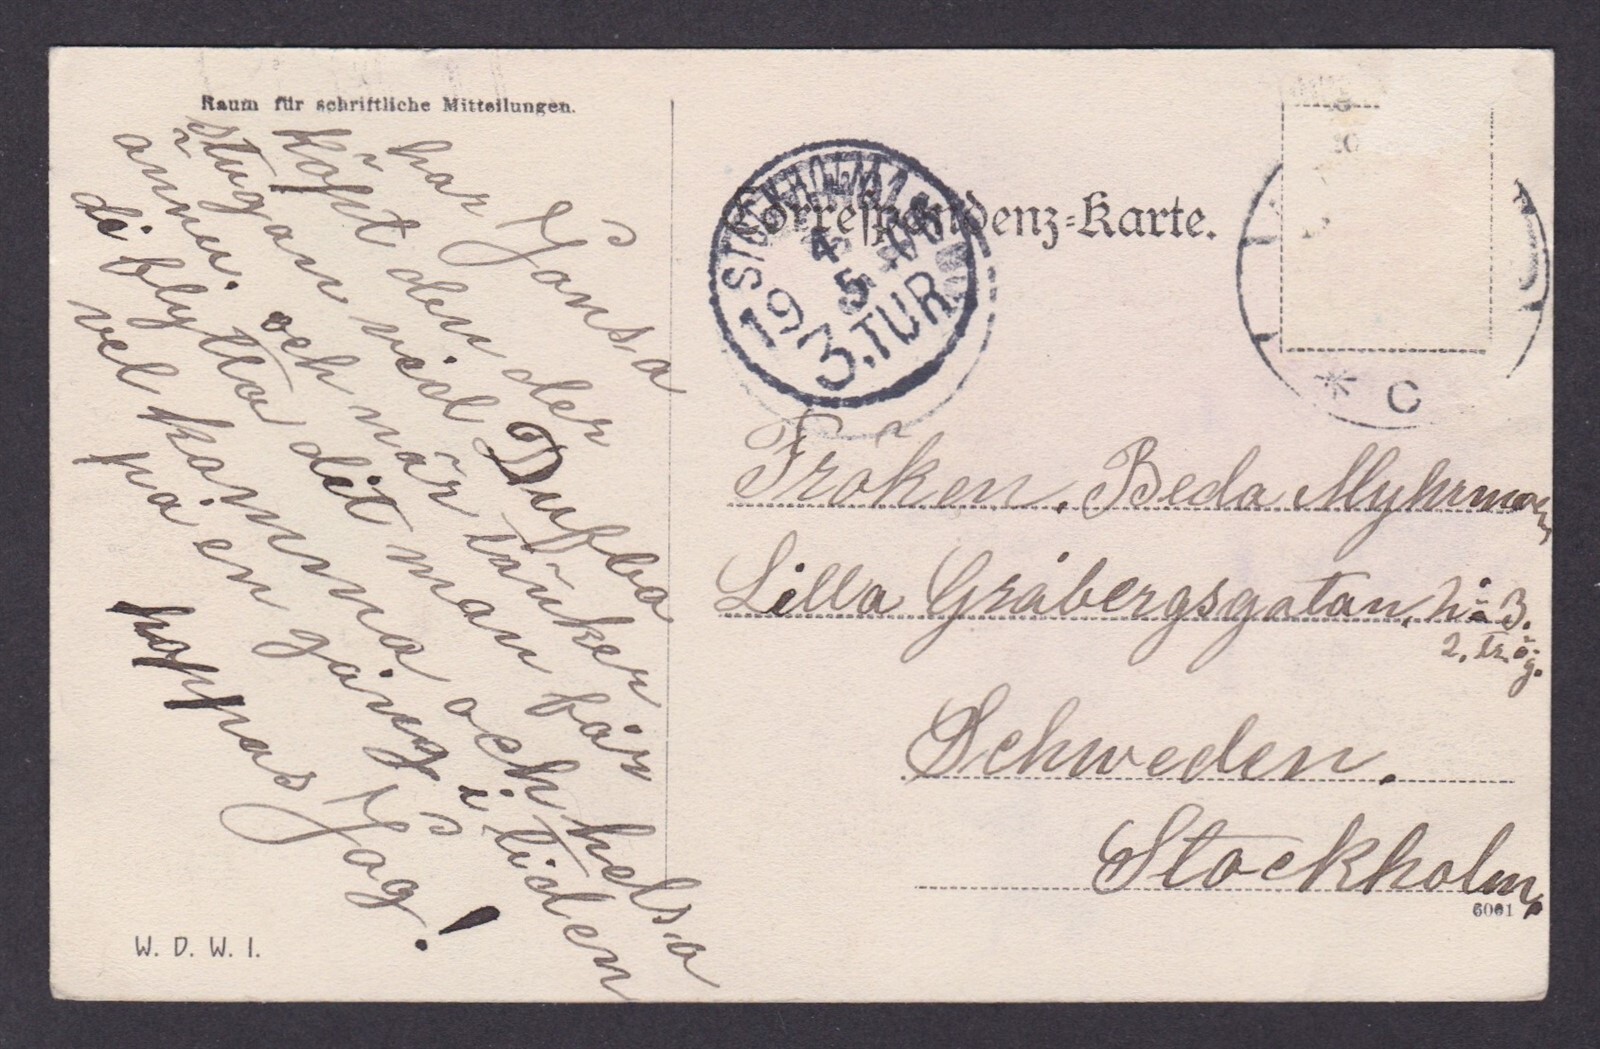 Raum für schriftliche Mitteilungen.
har Jonsa
köpt den der
stugan vid Dufbo
ännu. och när tänker
di flytta dit man får
vel komma och helsa
på en gång i tiden
hoppas Jag!
W. D. W. I.
Correspondenz-Karte.
STOCKHOLM
4
5
19 3.TUR
* C
Fröken. Beda Myhrman
Lilla Gråbergsgatan, No 3.
2. tr. ög.
Schweden.
Stockholm,
6001